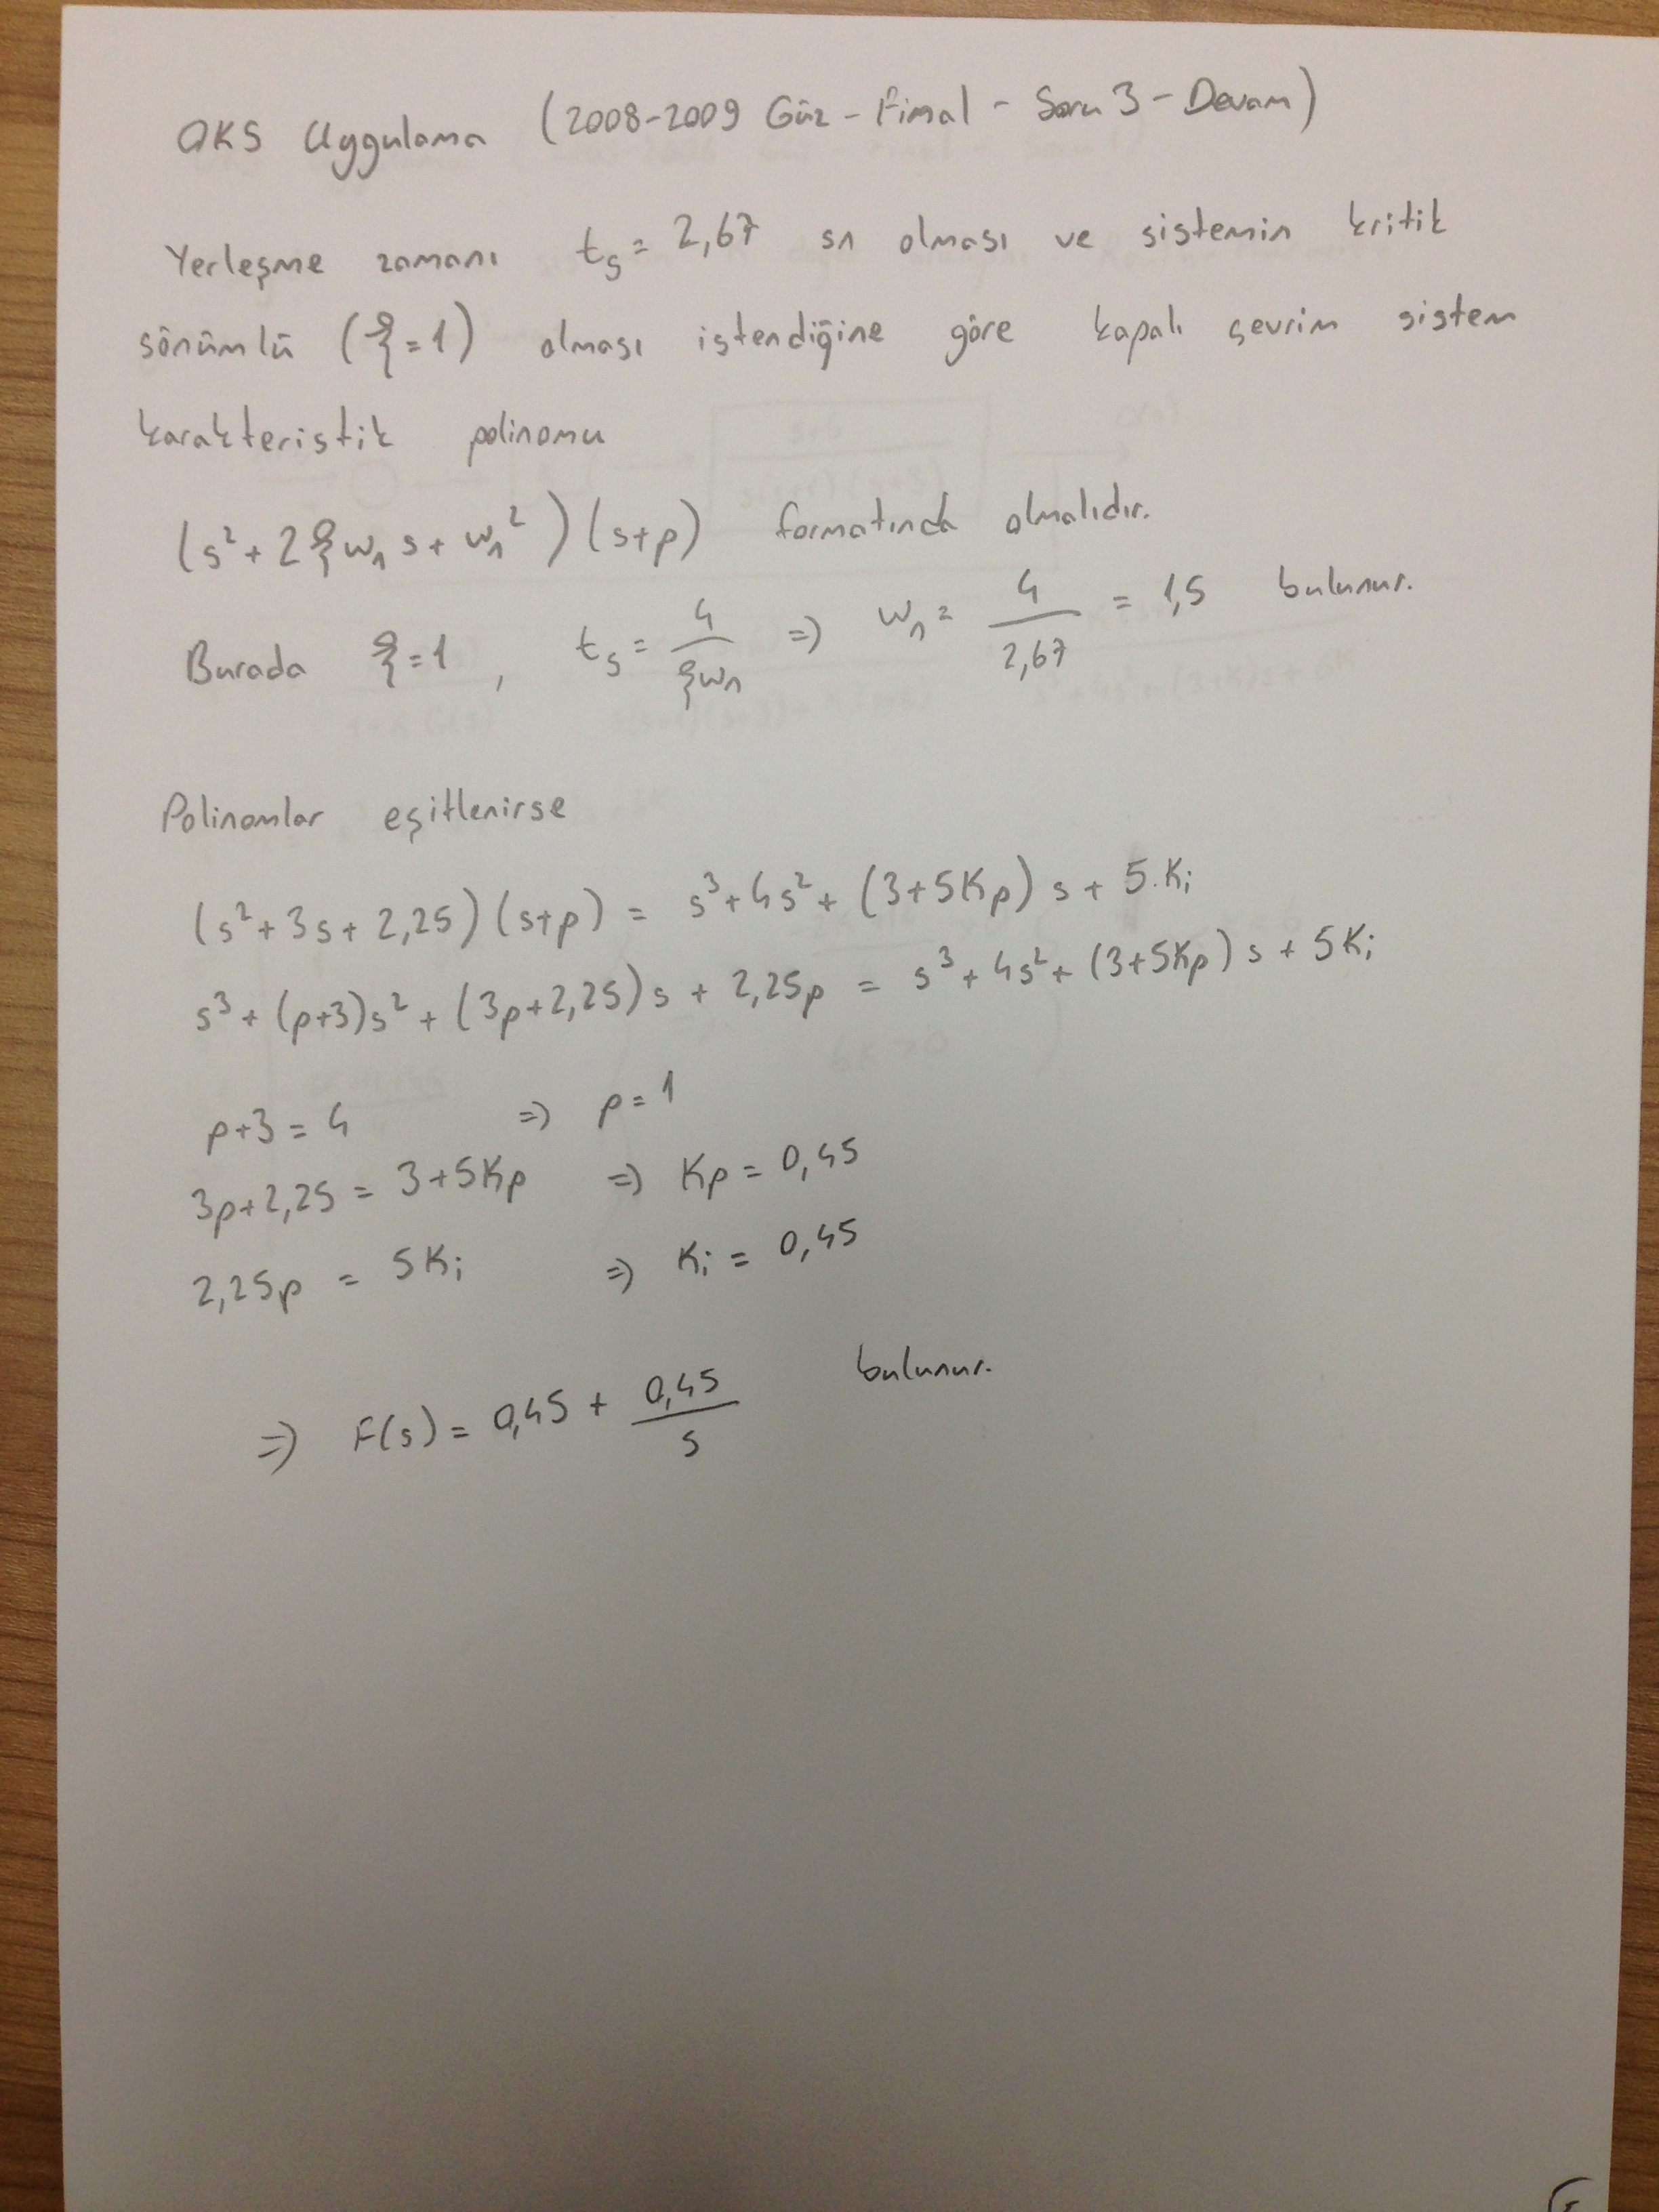 OKS Uygulama (2008-2009 Güz - Final - Soru 3 - Devam)
Yerleşme zamanı t_s = 2,67 sn olması ve sistemin kritik
sönümlü (ξ=1) olması istendiğine göre kapalı çevrim sistem
karakteristik polinomu
(s² + 2ξw_n s + w_n²)(s+p) formatında olmalıdır.
Burada ξ=1, t_s = 4/(ξw_n) => w_n = 4/2,67 = 1,5 bulunur.
Polinomlar eşitlenirse
(s² + 3s + 2,25)(s+p) = s³ + 4s² + (3+5Kp)s + 5.Ki
s³ + (p+3)s² + (3p+2,25)s + 2,25p = s³ + 4s² + (3+5Kp)s + 5Ki
p+3 = 4 => p = 1
3p+2,25 = 3+5Kp => Kp = 0,45
2,25p = 5Ki => Ki = 0,45
=> F(s) = 0,45 + 0,45/s bulunur.